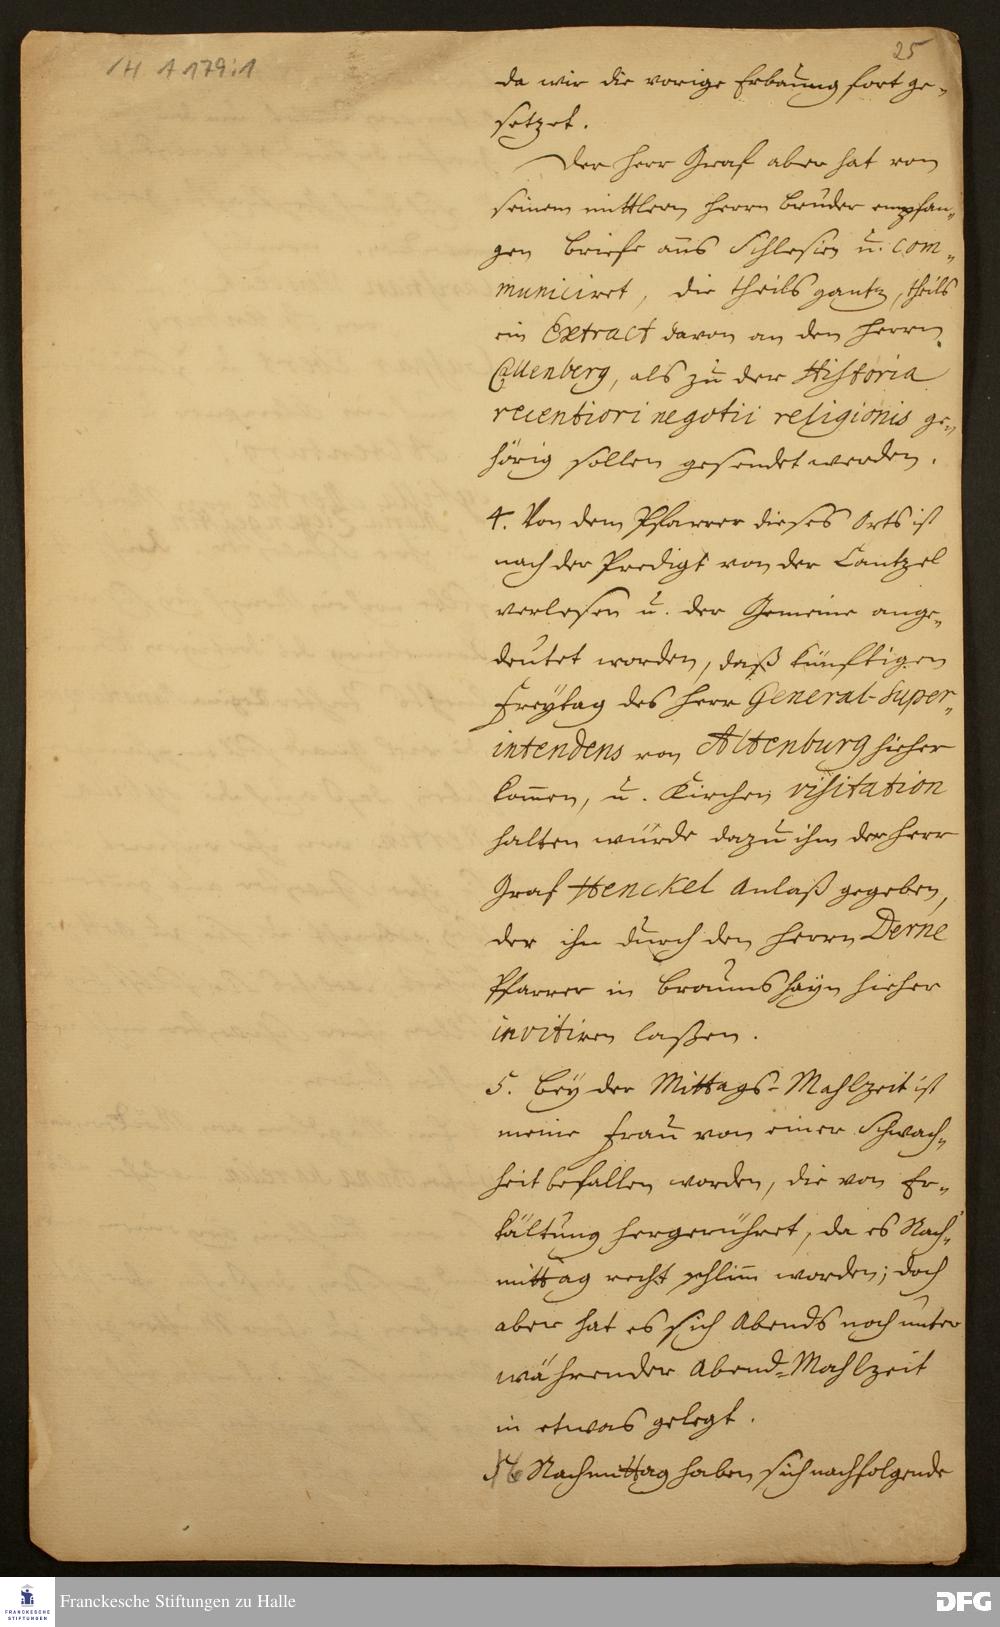 1H A 179:1
25
da wir die vorige Erbauung fort ge-
setzet.
Der Herr Graf aber hat von
seinem mittlern Herrn Bruder empfan-
gen Briefe aus Schlesien u. com-
municiret, die theils gantz, theils
ein Extract davon an den Herrn
Callenberg, als zu der Historia
recentiori negotii religionis ge-
hörig sollen gesendet werden.
4. Von dem Pfarrer dieses Orts ist
nach der Predigt von der Cantzel
verlesen u. der Gemeine ange-
deutet worden, daß künftigen
Freytag des Herr General-Super-
intendens von Altenburg hieher
kommen, u. Kirchen visitation
halten würde dazu ihm der Herr
Graf Henckel Anlaß gegeben,
der ihn durch den Herrn Derne
Pfarrer in Braunshayn hieher
invitiren laßen.
5. Bey der Mittags-Mahlzeit ist
meine Frau von einer Schwach-
heit befallen worden, die von Er-
kältung hergerühret, da es Nach-
mittag recht schlimm worden; doch
aber hat es sich Abends noch unter
währender Abend-Mahlzeit
in etwas gelegt.
6 Nachmittag haben sich nachfolgende
FRANCKESCHE
STIFTUNGEN
Franckesche Stiftungen zu Halle
DFG